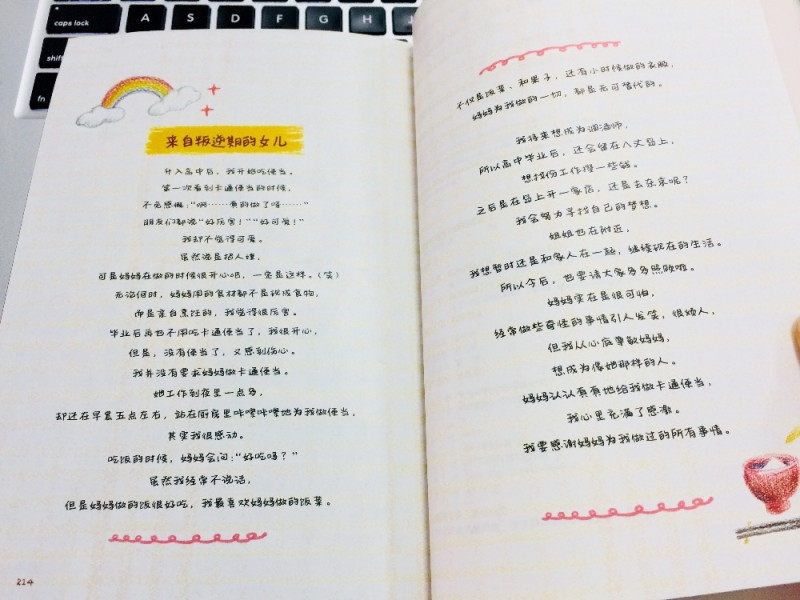 caps lock
A
S
D
F
G
H
shift
fn
来自叛逆期的女儿
升入高中后，我开始吃便当。
第一次看到卡通便当的时候，
不免感慨：“啊……真的做了呀……”
朋友们都说“好厉害！”“好可爱！”
我却不觉得可爱。
虽然说是招人嫌，
可是妈妈在做的时候很开心吧，一定是这样。（笑）
无论何时，妈妈用的食材都不是现成食物，
而是亲自烹饪的，我觉得很厉害。
毕业后再也不用吃卡通便当了，我很开心，
但是，没有便当了，又感到伤心。
我并没有要求妈妈做卡通便当。
她工作到夜里一点多，
却还在早晨五点左右，站在厨房里咔嚓咔嚓地为我做便当，
其实我很感动。
吃饭的时候，妈妈会问：“好吃吗？”
虽然我经常不说话，
但是妈妈做的饭很好吃，我最喜欢妈妈做的饭菜。
214
不仅是饭菜、和果子，还有小时候做的衣服，
妈妈为我做的一切，都是无可替代的。
我将来想成为调酒师，
所以高中毕业后，还会留在八丈岛上，
想找份工作攒一些钱。
之后是在岛上开一家店，还是去东京呢？
我会努力寻找自己的梦想。
姐姐也在附近，
我想暂时还是和家人在一起，继续现在的生活。
所以今后，也要请大家多多照顾啦。
妈妈实在是很可怕，
经常做些奇怪的事情引人发笑，很烦人，
但我从心底尊敬妈妈，
想成为像她那样的人。
妈妈认认真真地给我做卡通便当，
我心里充满了感激。
我要感谢妈妈为我做过的所有事情。